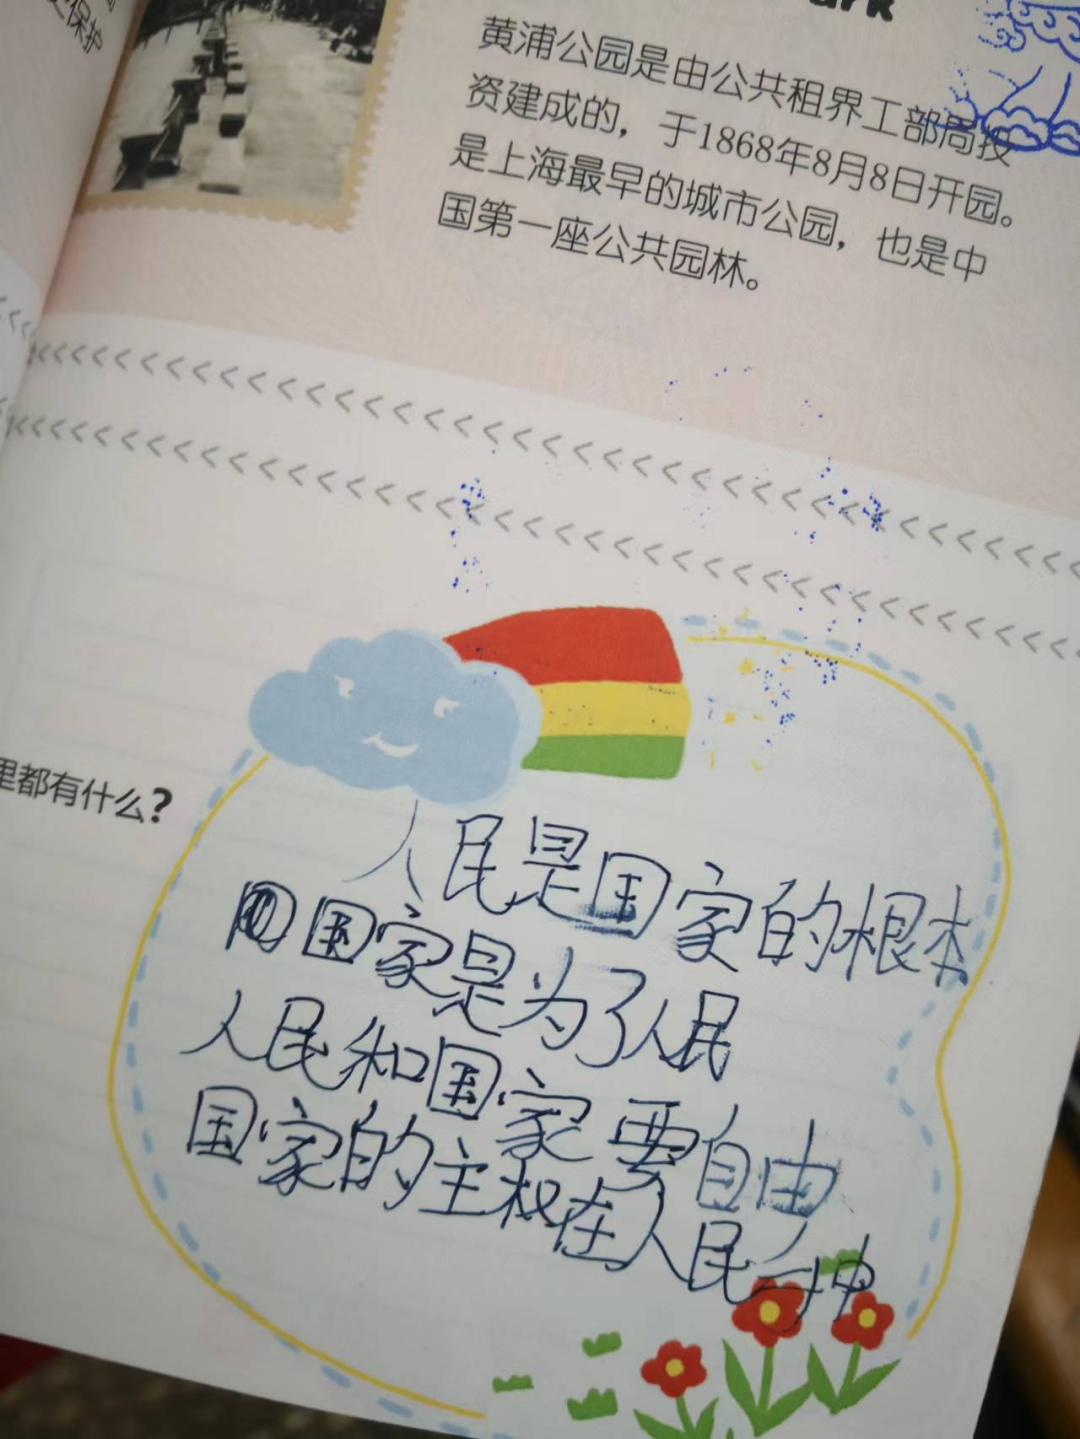 保护
ark
黄浦公园是由公共租界工部局投
资建成的，于1868年8月8日开园。
是上海最早的城市公园，也是中
国第一座公共园林。
里都有什么?
人民是国家的根本
国家是为了人民
人民和国家要自由
国家的主权在人民